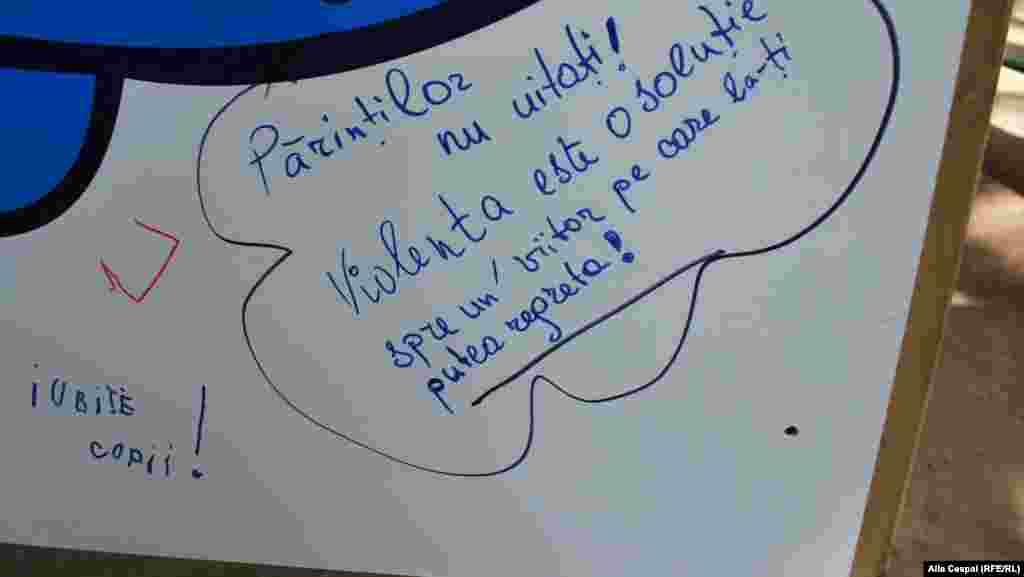 Părinților
nu uitați!
Violența este o soluție
spre un viitor pe care la-ți
putea regreta!
iUBiTE
copii!
Alla Ceapai (RFE/RL)